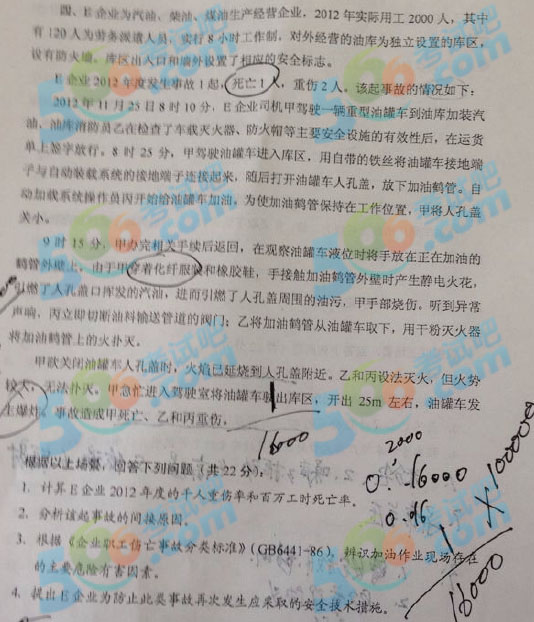 四、E 企业为汽油、柴油、煤油生产经营企业，2012 年实际用工 2000 人，其中
有 120 人为劳务派遣人员，实行 8 小时工作制，对外经营的油库为独立设置的库区，
设有防火墙。库区出入口和墙外设置了相应的安全标志。
E 企业 2012 年度发生事故 1 起，死亡 1 人，重伤 2 人。该起事故的情况如下：
2012 年 11 月 25 日 8 时 10 分，E 企业司机甲驾驶一辆重型油罐车到油库加装汽
油，油库消防员乙在检查了车载灭火器、防火帽等主要安全设施的有效性后，在运货
单上签字放行。8 时 25 分，甲驾驶油罐车进入库区，用自带的铁丝将油罐车接地端
子与自动装载系统的接地端子连接起来，随后打开油罐车人孔盖，放下加油鹤管。自
动加载系统操作员丙开始给油罐车加油，为使加油鹤管保持在工作位置，甲将人孔盖
关小。
9 时 15 分，甲办完相关手续后返回，在观察油罐车液位时将手放在正在加油的
鹤管外壁上，由于甲穿着化纤服装和橡胶鞋，手接触加油鹤管外壁时产生静电火花，
引燃了人孔盖口挥发的汽油，进而引燃了人孔盖周围的油污，甲手部烧伤，听到异常
声响，丙立即切断油料输送管道的阀门；乙将加油鹤管从油罐车取下，用干粉灭火器
将加油鹤管上的火扑灭。
甲欲关闭油罐车人孔盖时，火焰已延烧到人孔盖附近。乙和丙设法灭火，但火势
较大，无法扑灭。甲急忙进入驾驶室将油罐车驶出库区，开出 25m 左右，油罐车发
生爆炸，事故造成甲死亡、乙和丙重伤。
16000
根据以上场景，回答下列问题（共 22 分）：
1. 计算 E 企业 2012 年度的千人重伤率和百万工时死亡率。
2. 分析该起事故的间接原因。
3. 根据《企业职工伤亡事故分类标准》（GB6441-86），辨识加油作业现场存在
的主要危险有害因素。
4. 提出 E 企业为防止此类事故再次发生应采取的安全技术措施。
2000
0.16000
0.16
16000
566
考试吧
.com